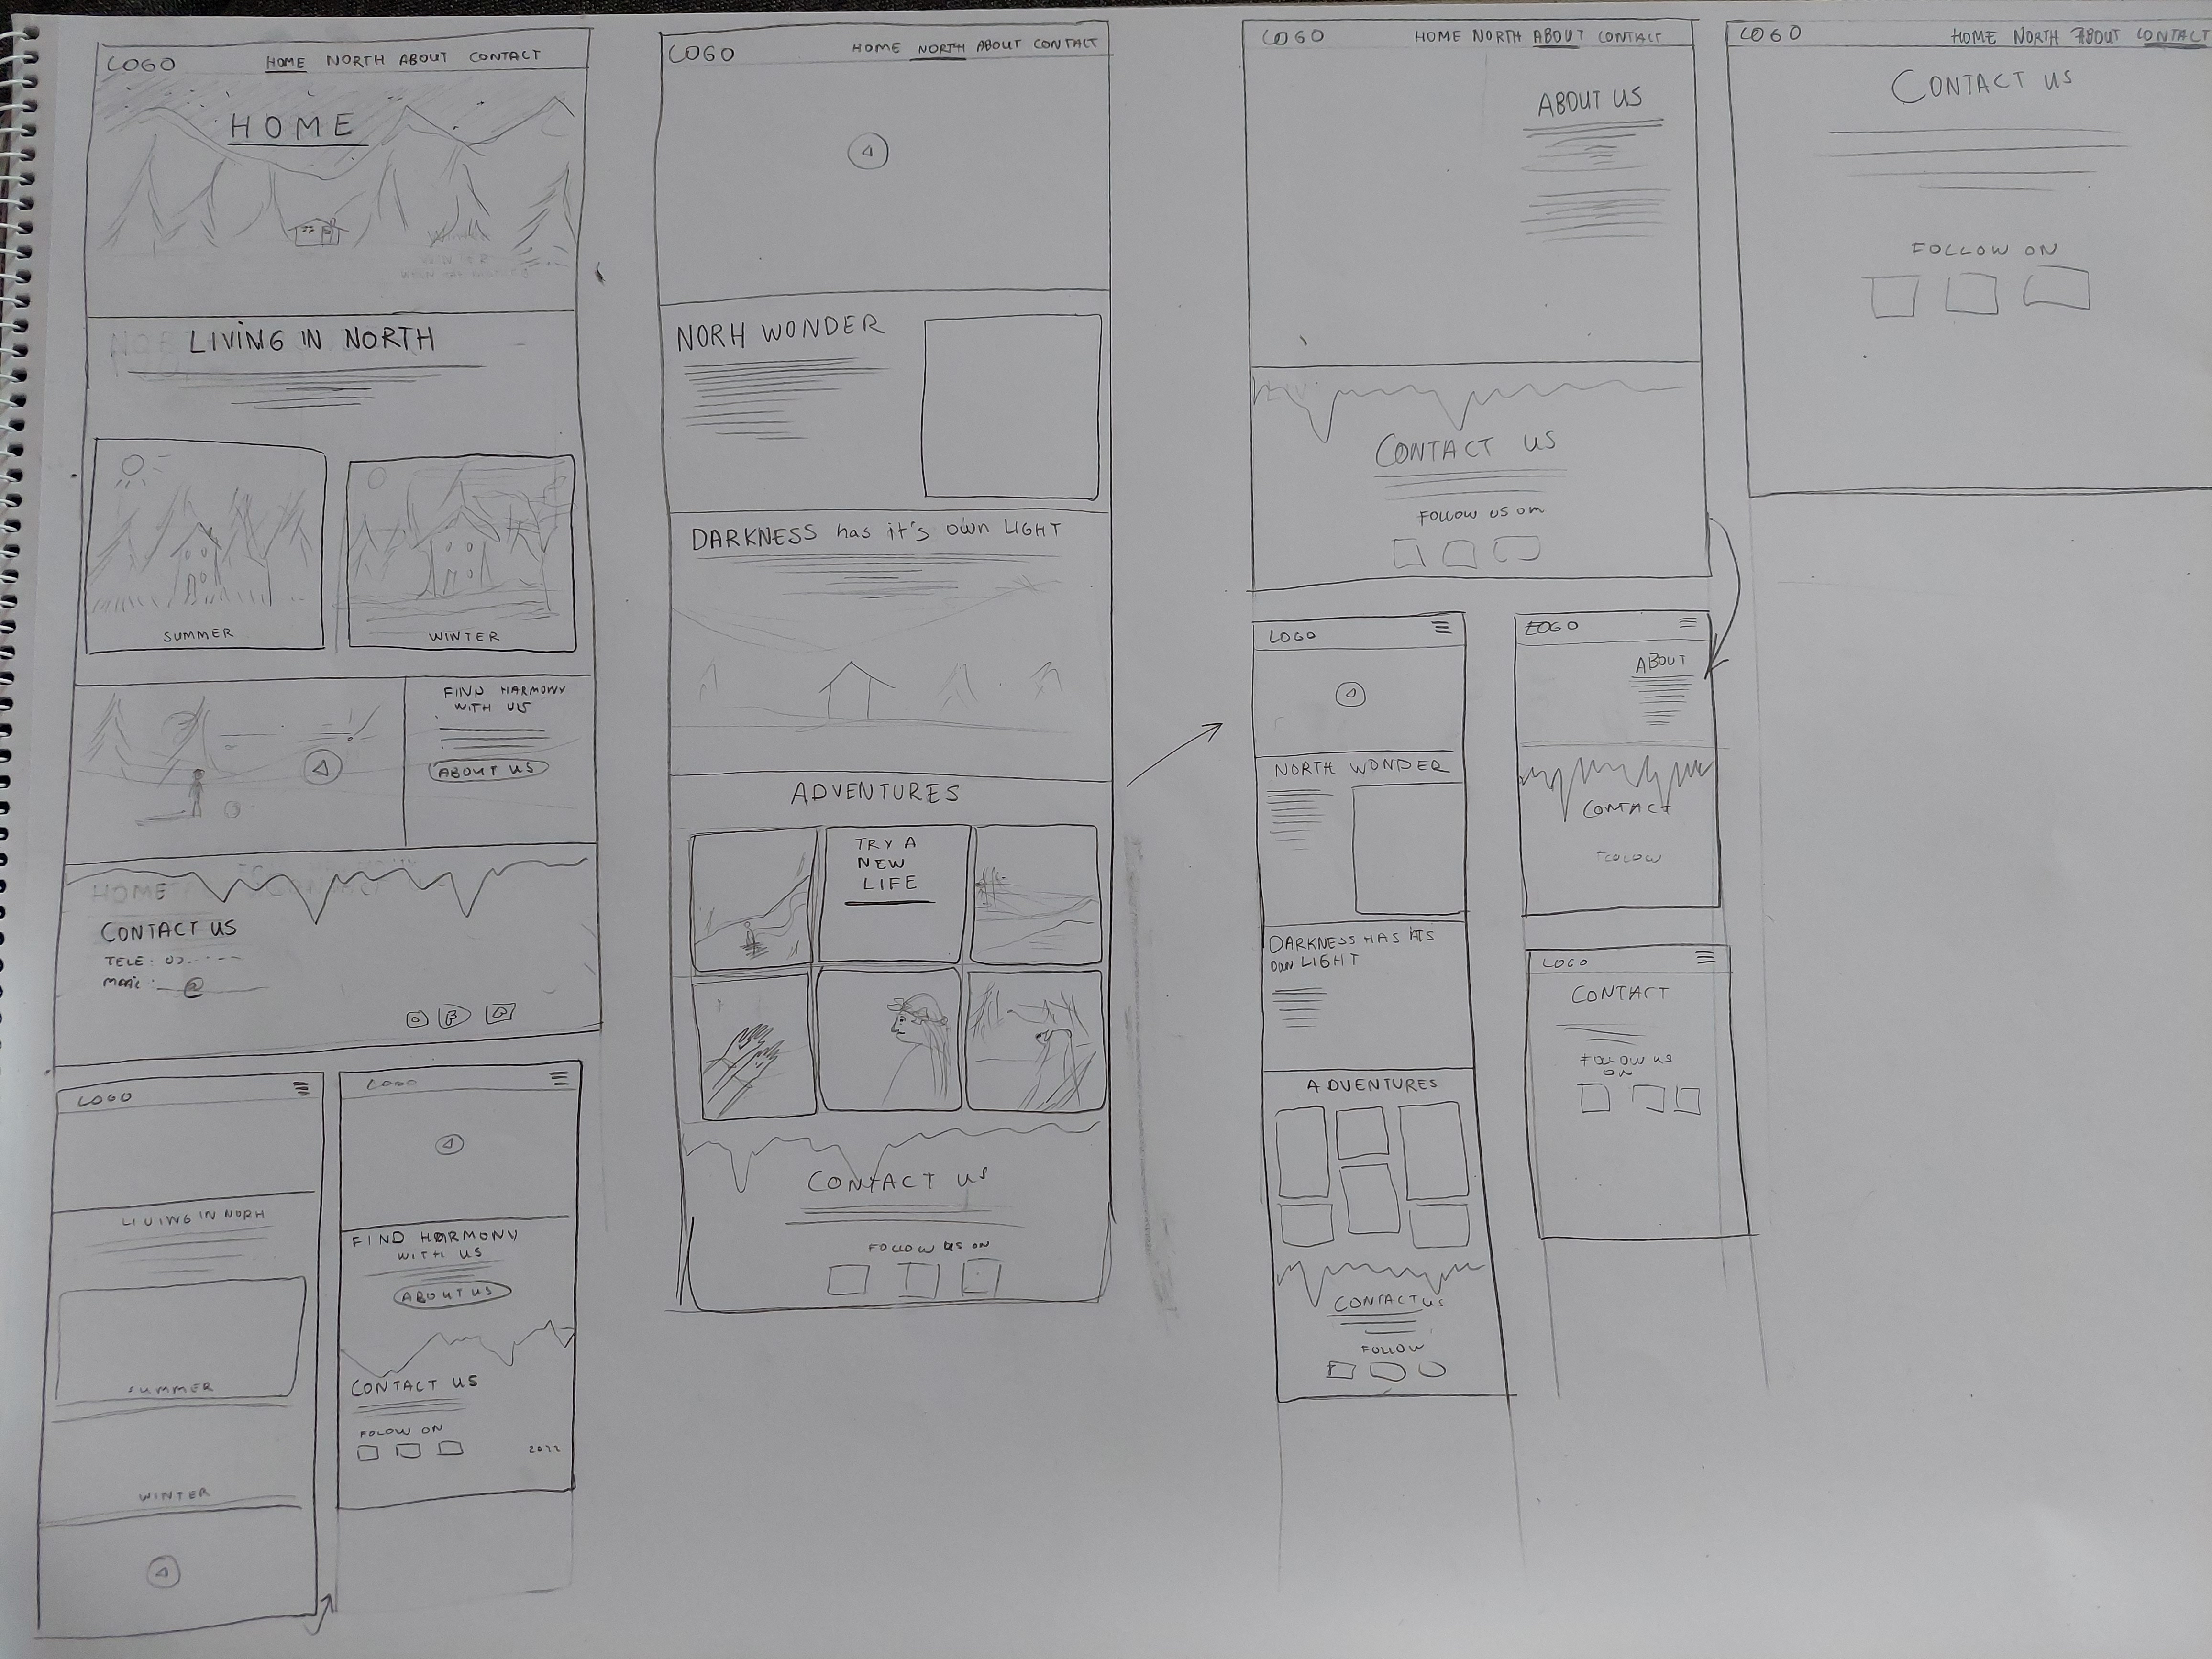 LOGO HOME NORTH ABOUT CONTACT
HOME
LIVING IN NORTH
SUMMER
WINTER
FIND HARMONY
WITH US
ABOUT US
CONTACT US
TELE:
@
LOGO
LIVING IN NORH
SUMMER
WINTER
LOGO
FIND HARMONY
WITH US
ABOUT US
CONTACT US
FOLOW ON
2022
LOGO HOME NORTH ABOUT CONTACT
NORH WONDER
DARKNESS has it's own LIGHT
ADVENTURES
TRY A
NEW
LIFE
CONTACT US
FOLLOW US ON
LOGO HOME NORTH ABOUT CONTACT
ABOUT US
CONTACT US
FOLLOW US on
LOGO
NORTH WONDER
DARKNESS HAS ITS
own LIGHT
ADVENTURES
CONTACT US
FOLLOW
LOGO
ABOUT
CONTACT
FOLOW
LOGO
CONTACT
FOLLOW US
ON
LOGO HOME NORTH ABOUT CONTACT
CONTACT US
FOLLOW ON